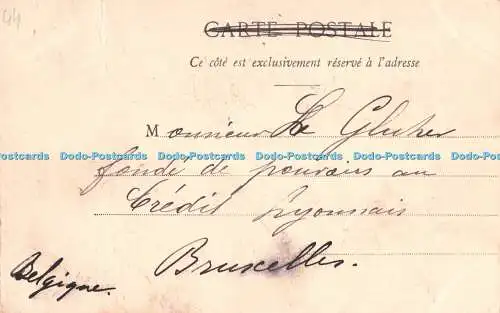 44
CARTE POSTALE
Ce côté est exclusivement réservé à l'adresse
Monsieur
fondé de pouvoirs au
Crédit Lyonnais
Bruxelles.
Belgique.
Dodo-Postcards Dodo-Postcards Dodo-Postcards Dodo-Postcards Dodo-Postcards